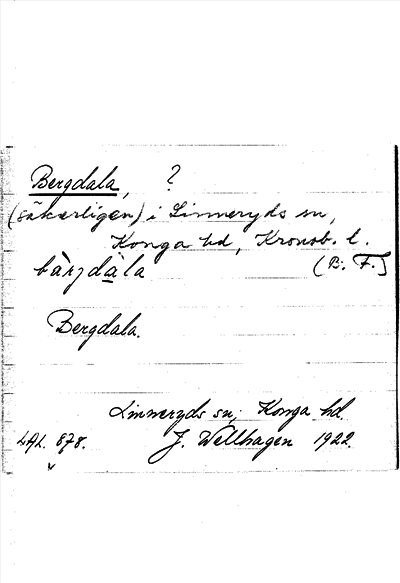 Bergdala, ?
(säkerligen) i Linneryds sn,
Konga hd, Kronob. l.
bàrjdàla (B: F.)
Bergdala.
Linneryds sn, Konga hd.
LAL. 878. J. Wellhagen 1922.